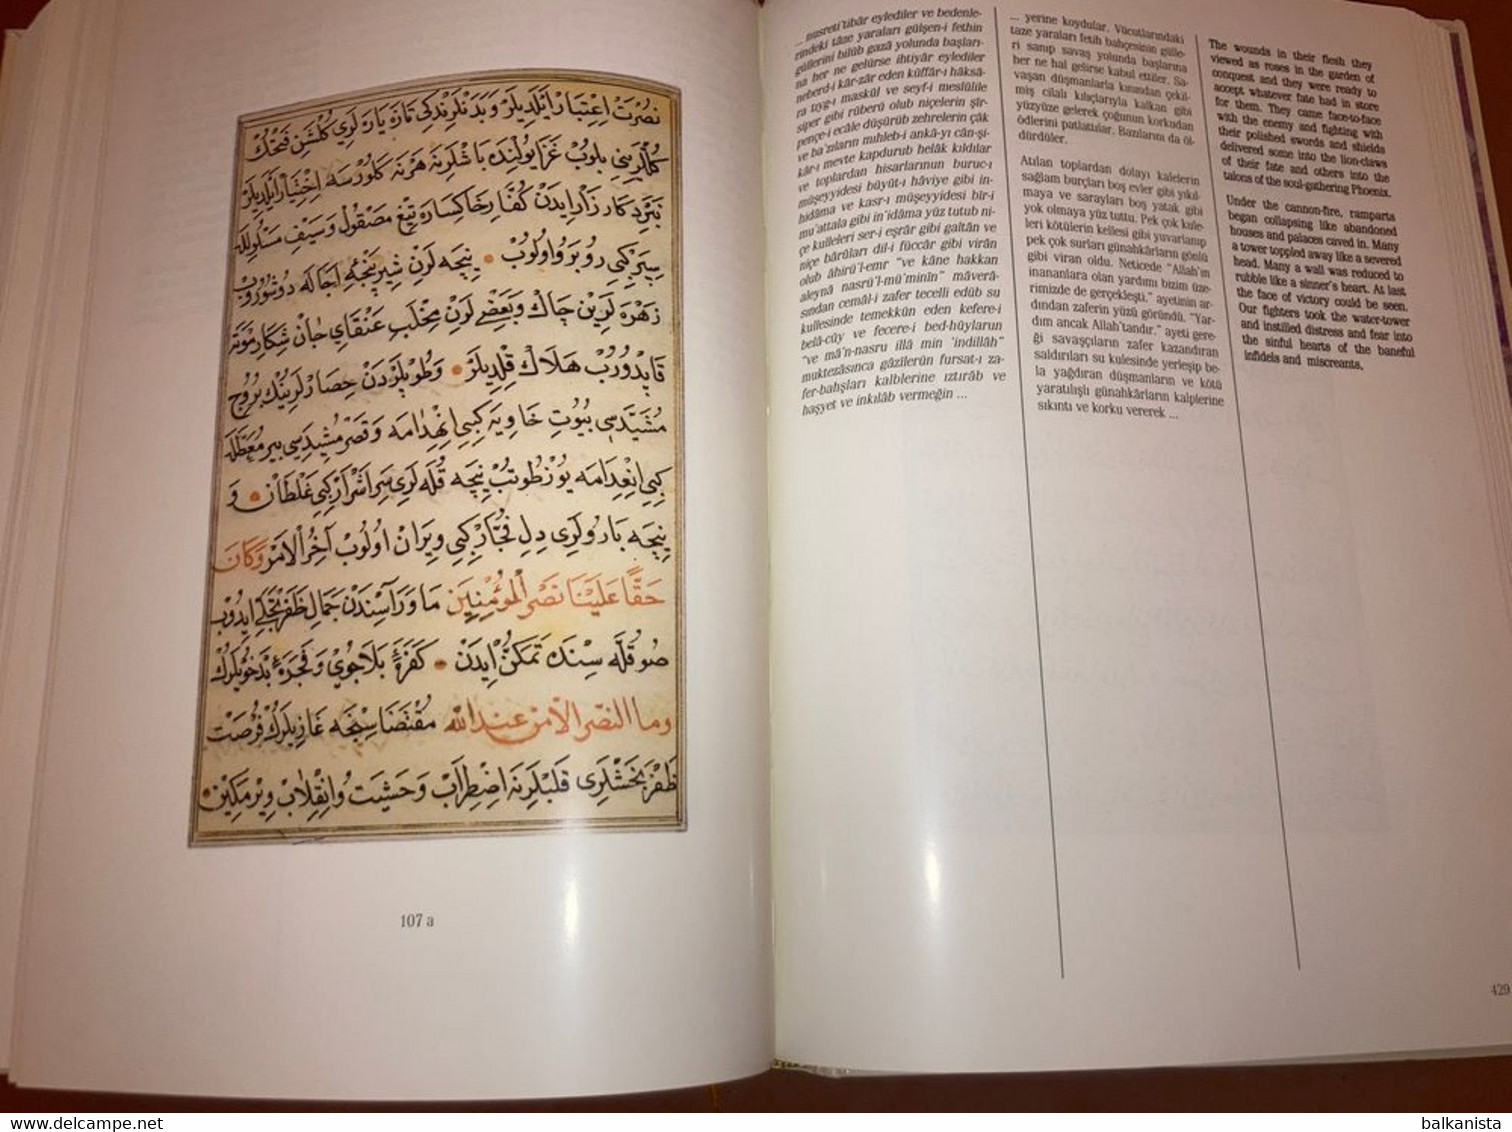 نصرت اعتبار ایلدیلر و بدنلرندکی تازه یارەلری کلشن فتحك
کللرینی بلوب غزا یولنده باشلرینه هرنه کلورسه اختیار ایلدیلر
نبرد کارزار ایدن کفار خاکساره تیغ مصقول و سیف مسلولله
سپر کبی روبرو اولوب نیجه لرن شیر پنجهٔ اجاله دوشوروب
زهره لرین چاك و بعضے لرن مخلب عنقای جان شکار موته
قاپدوروب هلاك قلدیلر و طوپلردن حصارلرینك بروج
مشیّدسی بیوت خاویه کبی انهدامه و قصر مشیدسی بیر معطّله
کبی انعدامه یوز طوتب نیجه قله لری سر اشرار کبی غلطان و
نیجه بارولری دل فجّار کبی ویران اولوب آخر الامر وكان
حقّا علينا نصر المؤمنين ماوراسندن جمال ظفر تجلی ایدوب
صو قله سنده تمکّن ایدن کفرهٔ بلاجوی و فجرهٔ بدخویلرك
وما النصر الا من عند الله مقتضاسنجه غازیلرك فرصت
ظفر بخشلری قلبلرنه اضطراب و حشیت و انقلاب ویرمکین
107 a
... nusreti'tibâr eylediler ve bedenle-
rindeki tâze yaraları gülşen-i fethin
güllerini bilüb gazâ yolunda başları-
na her ne gelürse ihtiyâr eylediler
neberd-i kâr-zâr eden küffâr-ı hâksâ-
ra tıyg-ı maskûl ve seyf-i meslûlile
siper gibi rûberû olub niçelerin şîr-
pençe-i ecâle düşürüb zehrelerin çâk
ve ba'zıların mıhleb-i ankâ-yı cân-şi-
kâr-ı mevte kapdurub helâk kıldılar
ve toplardan hisarlarının buruc-ı
müşeyyidesi büyût-ı hâviye gibi in-
hidâma ve kasr-ı müşeyyidesi bîr-i
mu'attala gibi in'idâma yüz tutub ni-
çe kulleleri ser-i eşrâr gibi galtân ve
niçe bârûları dil-i füccâr gibi virân
olub âhirü'l-emr "ve kâne hakkan
aleynâ nasrü'l-mü'minîn" mâverâ-
sından cemâl-i zafer tecelli edüb su
kullesinde temekkün eden kefere-i
belâ-cûy ve fecere-i bed-hûylarun
"ve mâ'n-nasru illâ min 'indillâh"
muktezâsınca gâzilerün fursat-ı za-
fer-bahşları kalblerine ıztırâb ve
haşyet ve inkılâb vermeğin ...
... yerine koydular. Vücutlarındaki
taze yaraları fetih bahçesinin gülle-
ri sanıp savaş yolunda başlarına
her ne hal gelirse kabul ettiler. Sa-
vaşan düşmanlarla kınından çekil-
miş cilalı kılıçlarıyla kalkan gibi
yüzyüze gelerek çoğunun korkudan
ödlerini patlattılar. Bazılarını da öl-
dürdüler.
Atılan toplardan dolayı kalelerin
sağlam burçları boş evler gibi yıkıl-
maya ve sarayları boş yatak gibi
yok olmaya yüz tuttu. Pek çok kule-
leri kötülerin kellesi gibi yuvarlanıp
pek çok surları günahkârların gönlü
gibi viran oldu. Neticede "Allah'ın
inananlara olan yardımı bizim üze-
rimizde de gerçekleşti." ayetinin ar-
dından zaferin yüzü göründü. "Yar-
dım ancak Allah'tandır." ayeti gere-
ği savaşçıların zafer kazandıran
saldırıları su kulesinde yerleşip be-
la yağdıran düşmanların ve kötü
yaratılışlı günahkârların kalplerine
sıkıntı ve korku vererek ...
The wounds in their flesh they
viewed as roses in the garden of
conquest and they were ready to
accept whatever fate had in store
for them. They came face-to-face
with the enemy and fighting with
their polished swords and shields
delivered some into the lion-claws
of their fate and others into the
talons of the soul-gathering Phoenix.
Under the cannon-fire, ramparts
began collapsing like abandoned
houses and palaces caved in. Many
a tower toppled away like a severed
head. Many a wall was reduced to
rubble like a sinner's heart. At last
the face of victory could be seen.
Our fighters took the water-tower
and instilled distress and fear into
the sinful hearts of the baneful
infidels and miscreants.
429
© delcampe.net
balkanista